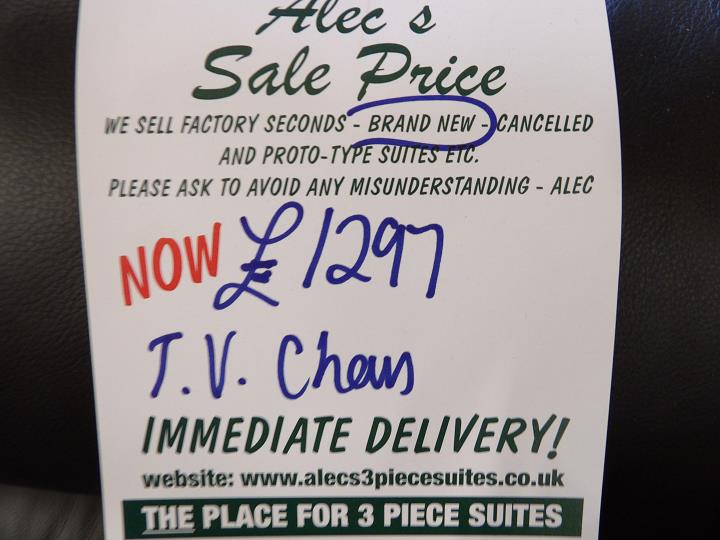 Alec's
Sale Price
WE SELL FACTORY SECONDS - BRAND NEW - CANCELLED
AND PROTO-TYPE SUITES ETC.
PLEASE ASK TO AVOID ANY MISUNDERSTANDING - ALEC
NOW £1297
T.V. Chairs
IMMEDIATE DELIVERY!
website: www.alecs3piecesuites.co.uk
THE PLACE FOR 3 PIECE SUITES